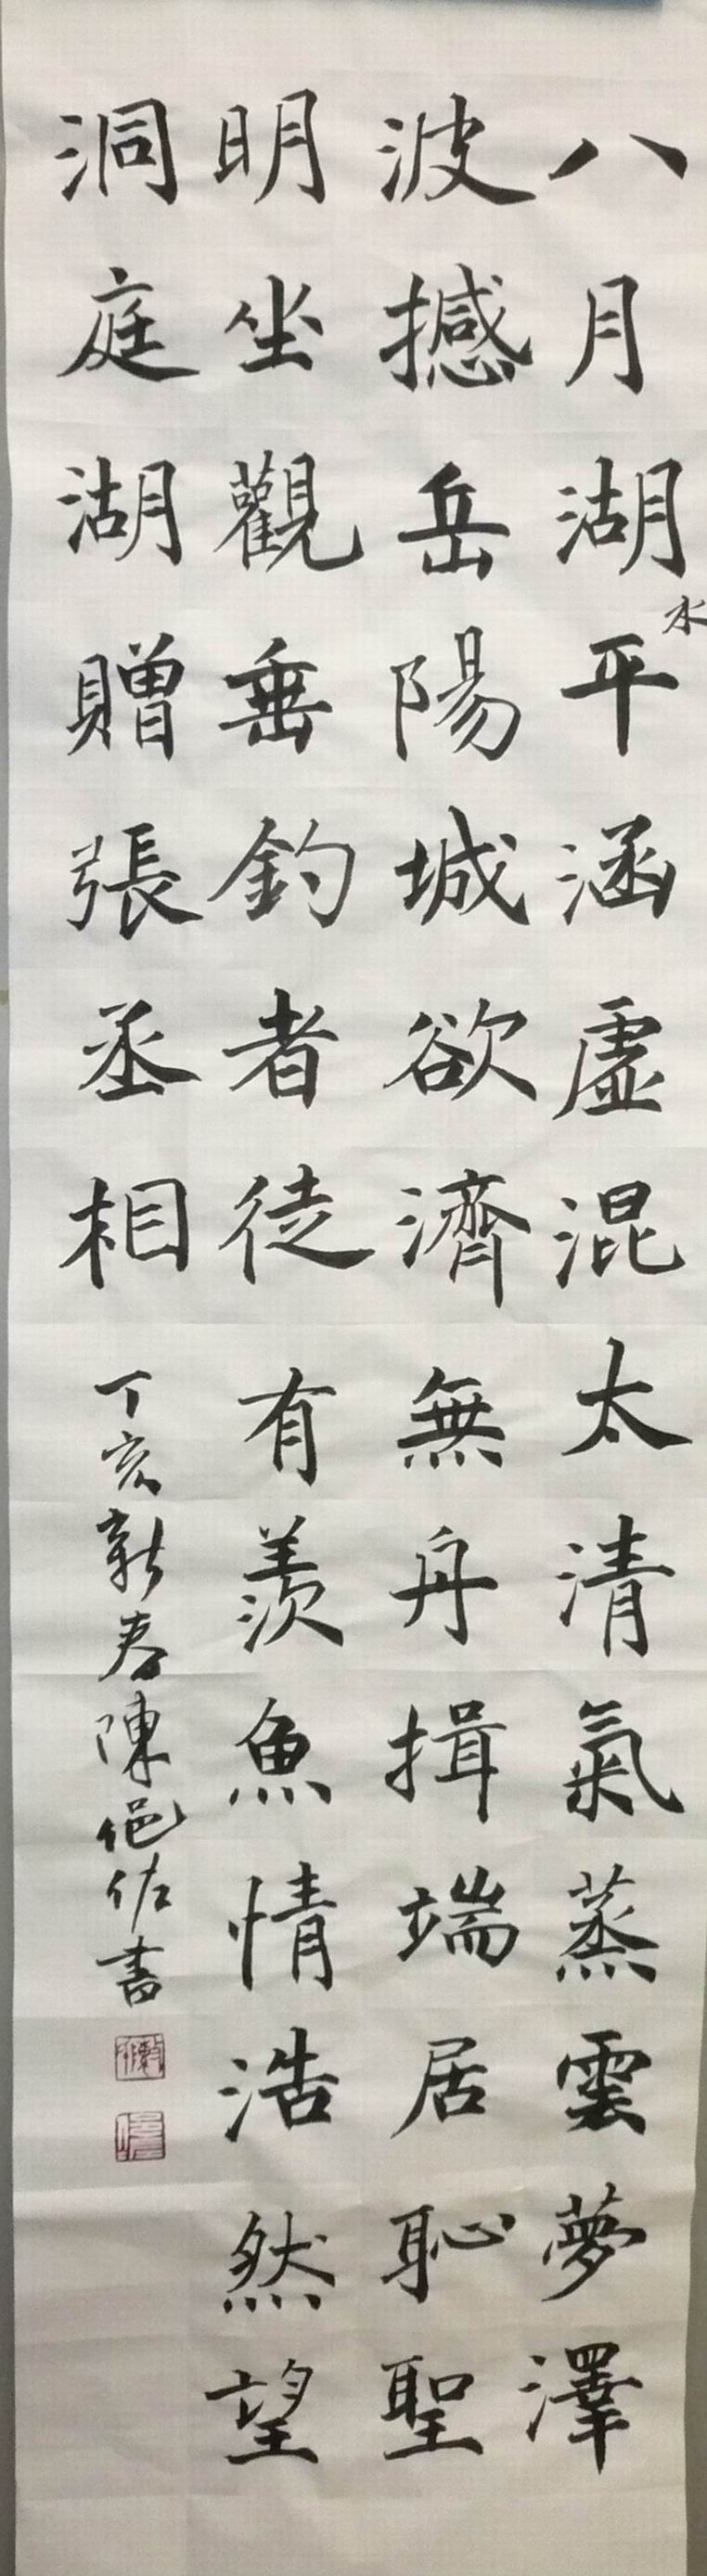 八月湖水平涵虛混太清氣蒸雲夢澤
波撼岳陽城欲濟無舟揖端居恥聖
明坐觀垂釣者徒有羨魚情浩然望
洞庭湖贈張丞相
丁亥新春陳俋佐書